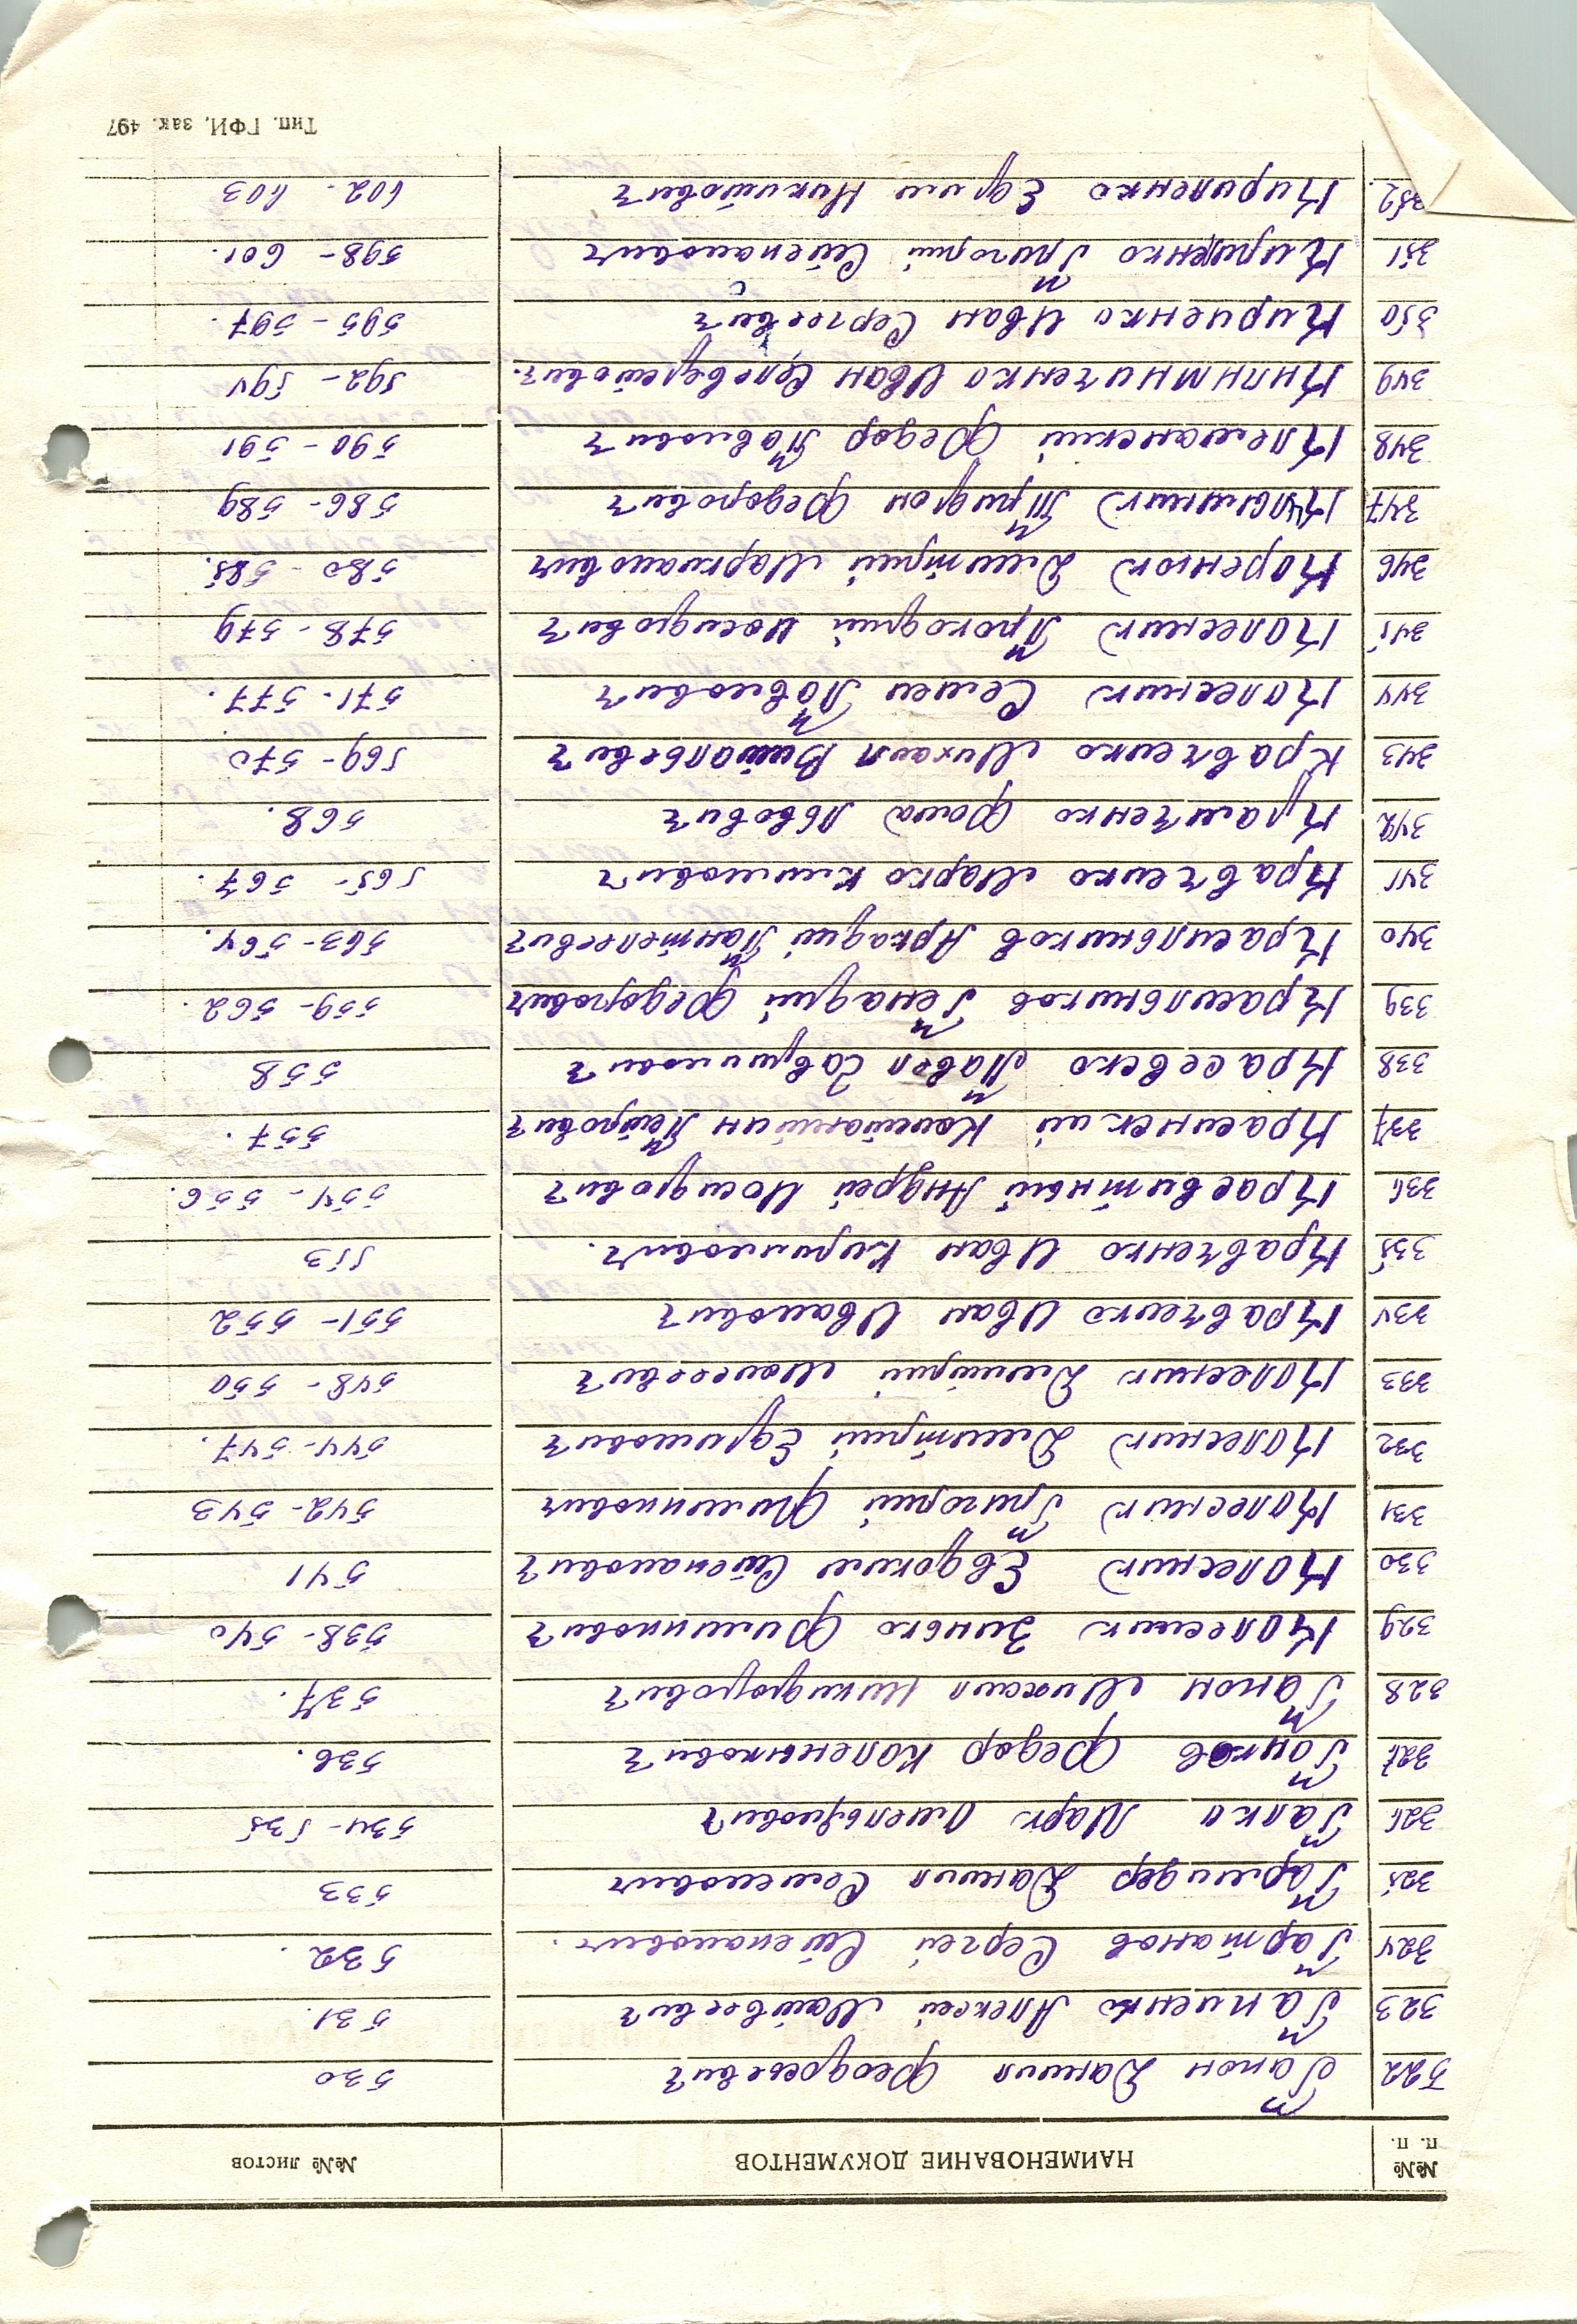 №№ п. п. НАИМЕНОВАНИЕ ДОКУМЕНТОВ №№ листов
322 Гапон Данил Феодосьевич 530
323 Гапченко Алексей Матвеевич 531.
324 Гартанов Сергей Степанович. 532.
325 Гармидер Данил Семенович 533
326 Галка Марк Омельянович 534-535
327 Ганков Федор Каленикович 536.
328 Гапон Михаил Никифорович 537.
329 Колесник Зинько Филиппович 538-540
330 Колесник Евдоким Степанович 541
331 Колесник Григорий Филиппович 542-543
332 Колесник Дмитрий Ефимович 544-547.
333 Колесник Дмитрий Моисеевич 548-550
334 Кравченко Иван Иванович 551-552
335 Кравченко Иван Кириллович. 553
336 Красвитный Андрей Иосифович 554-556.
337 Красинский Константин Петрович 557.
338 Красевско Павел Савринович 558
339 Красильников Генадий Федорович 559-562.
340 Красильников Аркадий Пантелеевич 563-564.
341 Кравченко Марко Климович 565-567.
342 Крамченко Фома Львович 568.
343 Кравченко Михаил Витальевич 569-570
344 Колесник Семен Павлович 571-577.
345 Колесник Прокофий Иосифович 578-579
346 Коренюк Дмитрий Маркианович 580-585.
347 Кульчицкий Трифон Федорович 586-589
348 Клеманский Федор Павлович 590-591
349 Килимниченко Иван Селеверстович. 592-594
350 Кириенко Иван Сергеевич 595-597.
351 Кириленко Григорий Степанович 598-601.
352. Кириленко Ефим Никитович 602-603
Тип. ГФИ, зак. 497